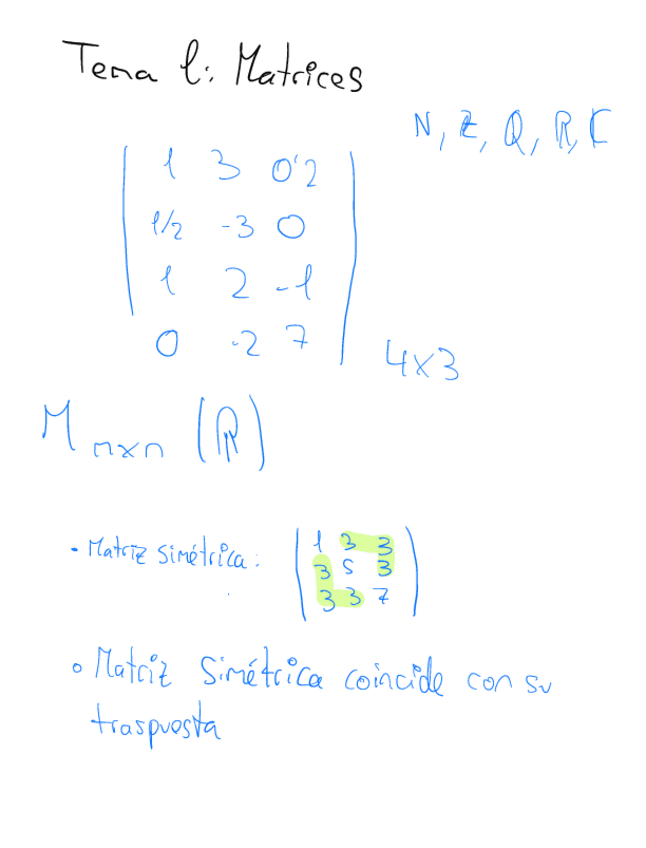 Tema 1: Matrices
N, Z, Q, R, C
1 3 0'2
1/2 -3 0
1 2 -1
0 -2 7
4x3
M nxn (R)
• Matriz simétrica:
1 3 3
3 5 3
3 3 7
• Matriz simétrica coincide con su
traspuesta